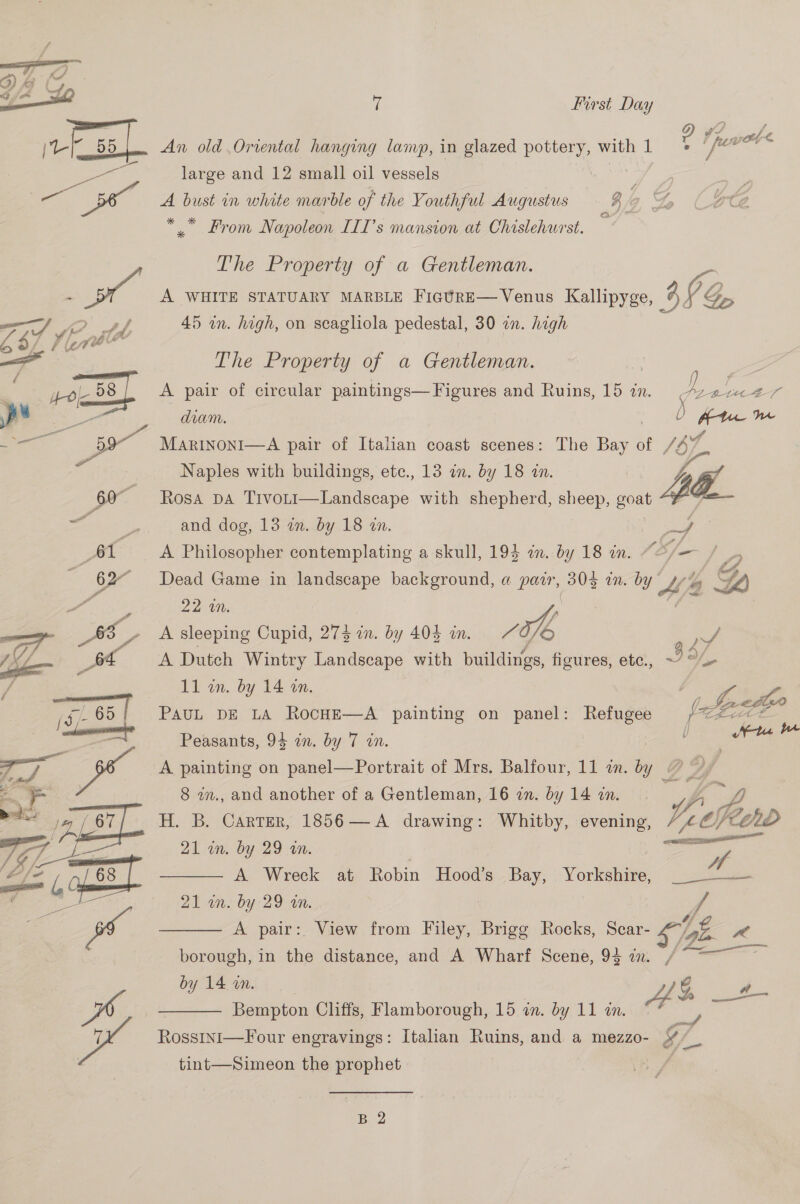 7 First Day
55 An old Oriental hanging lamp, in glazed pottery, with 1
large and 12 small oil vessels
56 A bust in white marble of the Youthful Augustus
*** From Napoleon III's mansion at Chislehurst.
The Property of a Gentleman.
57 A WHITE STATUARY MARBLE FIGURE—Venus Kallipyge,
45 in. high, on scagliola pedestal, 30 in. high
The Property of a Gentleman.
58 A pair of circular paintings—Figures and Ruins, 15 in.
diam.
59 MARINONI—A pair of Italian coast scenes: The Bay of
Naples with buildings, etc., 13 in. by 18 in.
60 ROSA DA TIVOLI—Landscape with shepherd, sheep, goat
and dog, 13 in. by 18 in.
61 A Philosopher contemplating a skull, 19½ in. by 18 in.
62 Dead Game in landscape background, a pair, 30½ in. by
22 in.
63 A sleeping Cupid, 27½ in. by 40½ in.
64 A Dutch Wintry Landscape with buildings, figures, etc.,
11 in. by 14 in.
65 PAUL DE LA ROCHE—A painting on panel: Refugee
Peasants, 9½ in. by 7 in.
66 A painting on panel—Portrait of Mrs. Balfour, 11 in. by
8 in., and another of a Gentleman, 16 in. by 14 in.
67 H. B. CARTER, 1856—A drawing: Whitby, evening,
21 in. by 29 in.
68 ——— A Wreck at Robin Hood's Bay, Yorkshire,
21 in. by 29 in.
69 ——— A pair: View from Filey, Brigg Rocks, Scar-
borough, in the distance, and A Wharf Scene, 9½ in.
by 14 in.
70 ——— Bempton Cliffs, Flamborough, 15 in. by 11 in.
71 ROSSINI—Four engravings: Italian Ruins, and a mezzo-
tint—Simeon the prophet
B 2